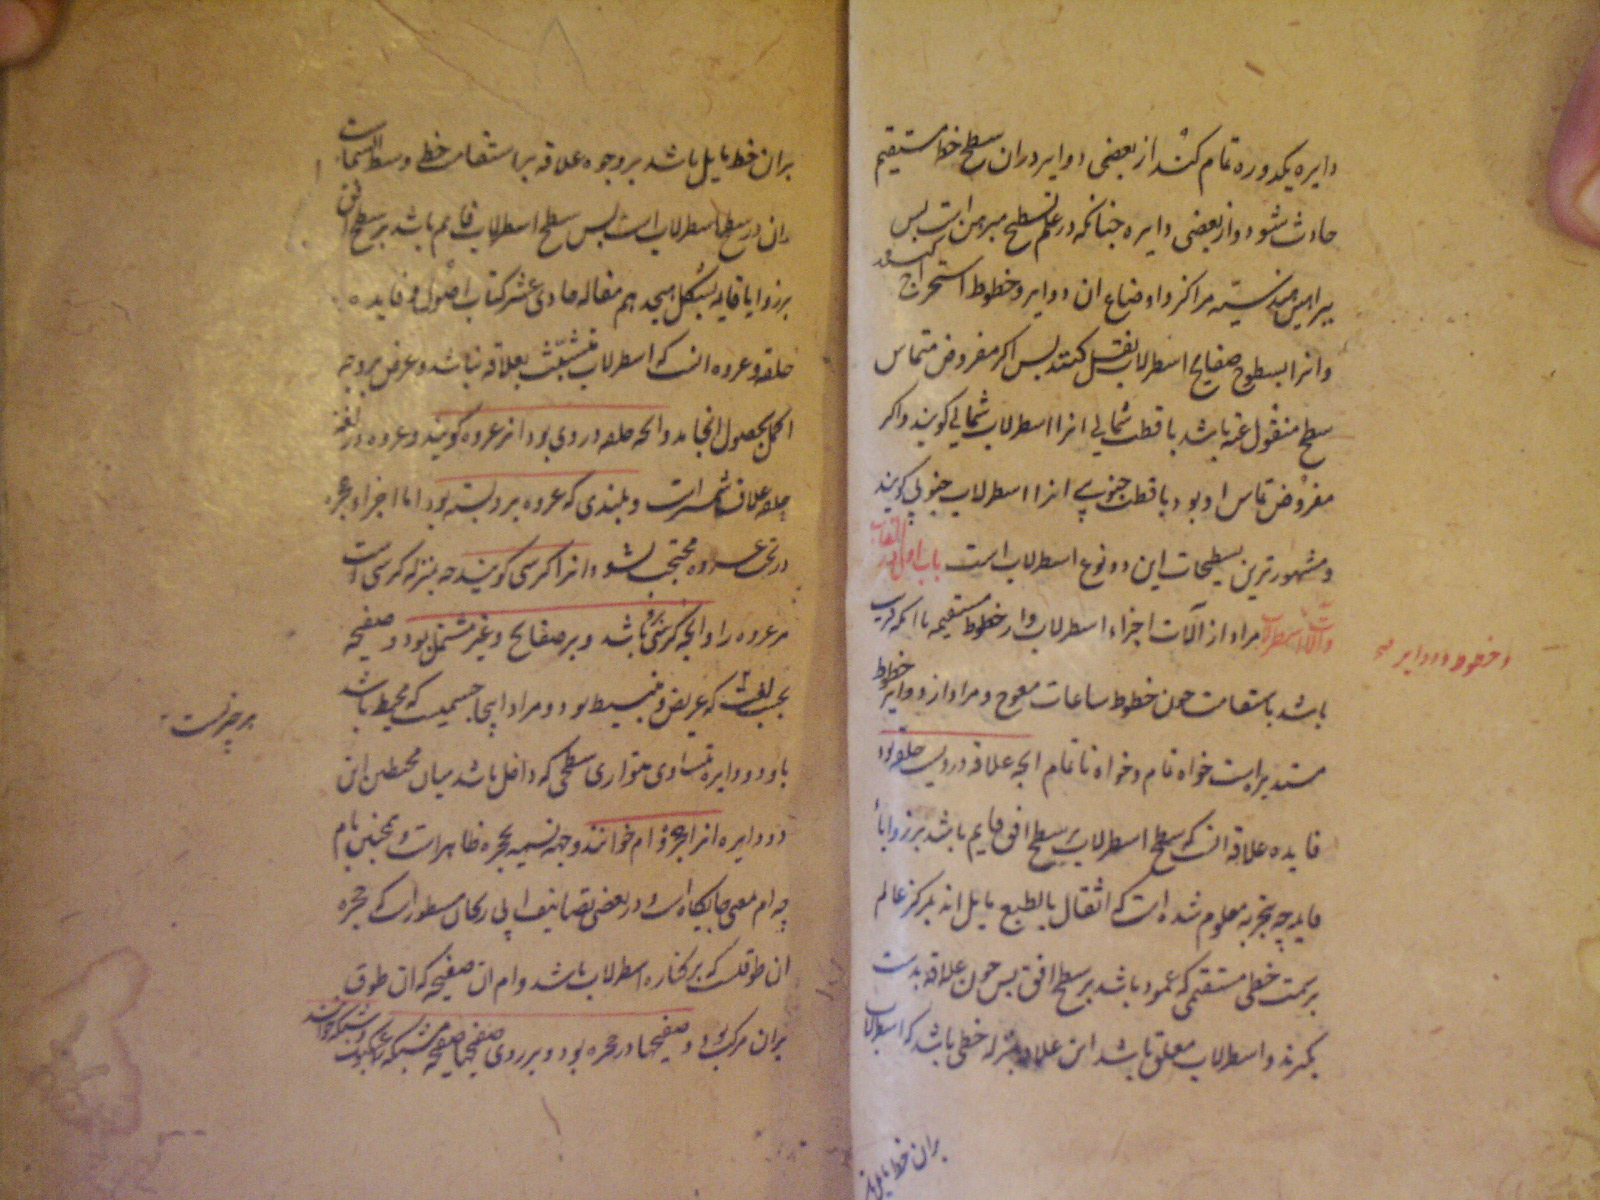 دایره یکدوره تمام کند از بعضی دوایر دران سطح خط مستقیم
حادث شود و از بعضی دایره چنانکه در علم تسطیح مبرهن است پس
ببراهین هندسیه مراکز و اوضاع ان دوایر و خطوط استخراج کنند
و انرا بسطوح صفایح اسطرلاب نقل کنند پس اکر مفروض متماس
سطح منقول عنه باشد با قطب شمالی انرا اسطرلاب شمالی کویند و اکر
مفروض تماس او بود با قطب جنوبی انرا اسطرلاب جنوبی کویند
و مشهورترین تسطیحات این دو نوع اسطرلاب است باب اول در القاب
والات اسطرلاب مراد از آلات اجزاء اسطرلاب و از خطوط مستقیمه یا انکه قریب
و خطوط و دوایر
باشد باستقامت چون خطوط ساعات معوج و مراد از دوایر خطوط
مستدیر است خواه تام و خواه ناتمام انچه علاقه درویست حلقه بود
فایده علاقه انست که سطح اسطرلاب بر سطح افق قایم باشد بر زوایاء
قایمه چه بتجربه معلوم شده است که اثقال بالطبع مایل اند بمرکز عالم
بر سمت خطی مستقیم که عمود باشد بر سطح افق پس چون علاقه بدست
بکیرند و اسطرلاب معلق باشد این علاقه بمنزله خطی باشد که اسطرلاب
بران خط مایل باشد
بران خط مایل باشد بر وجوه علاقه بر استقامت خطی وسط السمات
ان در سطح اسطرلاب است پس سطح اسطرلاب قایم باشد بر سطح افق
بر زوایا قایمه بشکل هیجدهم مقاله حادی عشر کتاب اصول و فایده
حلقه و عروه انست که اسطرلاب متشبث بعلاقه نباشد و غرض بر وجه
اکمل بحصول انجامد و انچه حلقه در وی بود انرا عروه کویند و عروه در لغة
و بلندی که عروه برو بسته بود اما اجزاء حجره
در تحت عروه محتجب نشود انرا کرسی کویند چه بمنزله کرسی است
مر عروه را و انچه کرسی برو باشد و بر صفایح و غیر مشتمل بود و صفیحه
بحسب لغت که عریض و منبسط بود و مراد اینجا جسمیست که محیط باشد
هر چیزیست
باو دو دایره متساوی متوازی و سطحی که داخل باشد میان محیطین این
دو دایره انرا حجره و ام خوانند و وجه تسمیه بحجره ظاهر است و همچنین بام
چه ام معنی جایکاه است و در بعضی تصانیف ابی ریحان مسطور است که حجره
ان طوقست که بر کناره اسطرلاب باشد و ام ان صفیحه که ان طوق
بران مرکب بود و صفیحها در حجره بود و بر روی صفیحها صفیحه مشبکه عنکبوت و شبکه خوانند